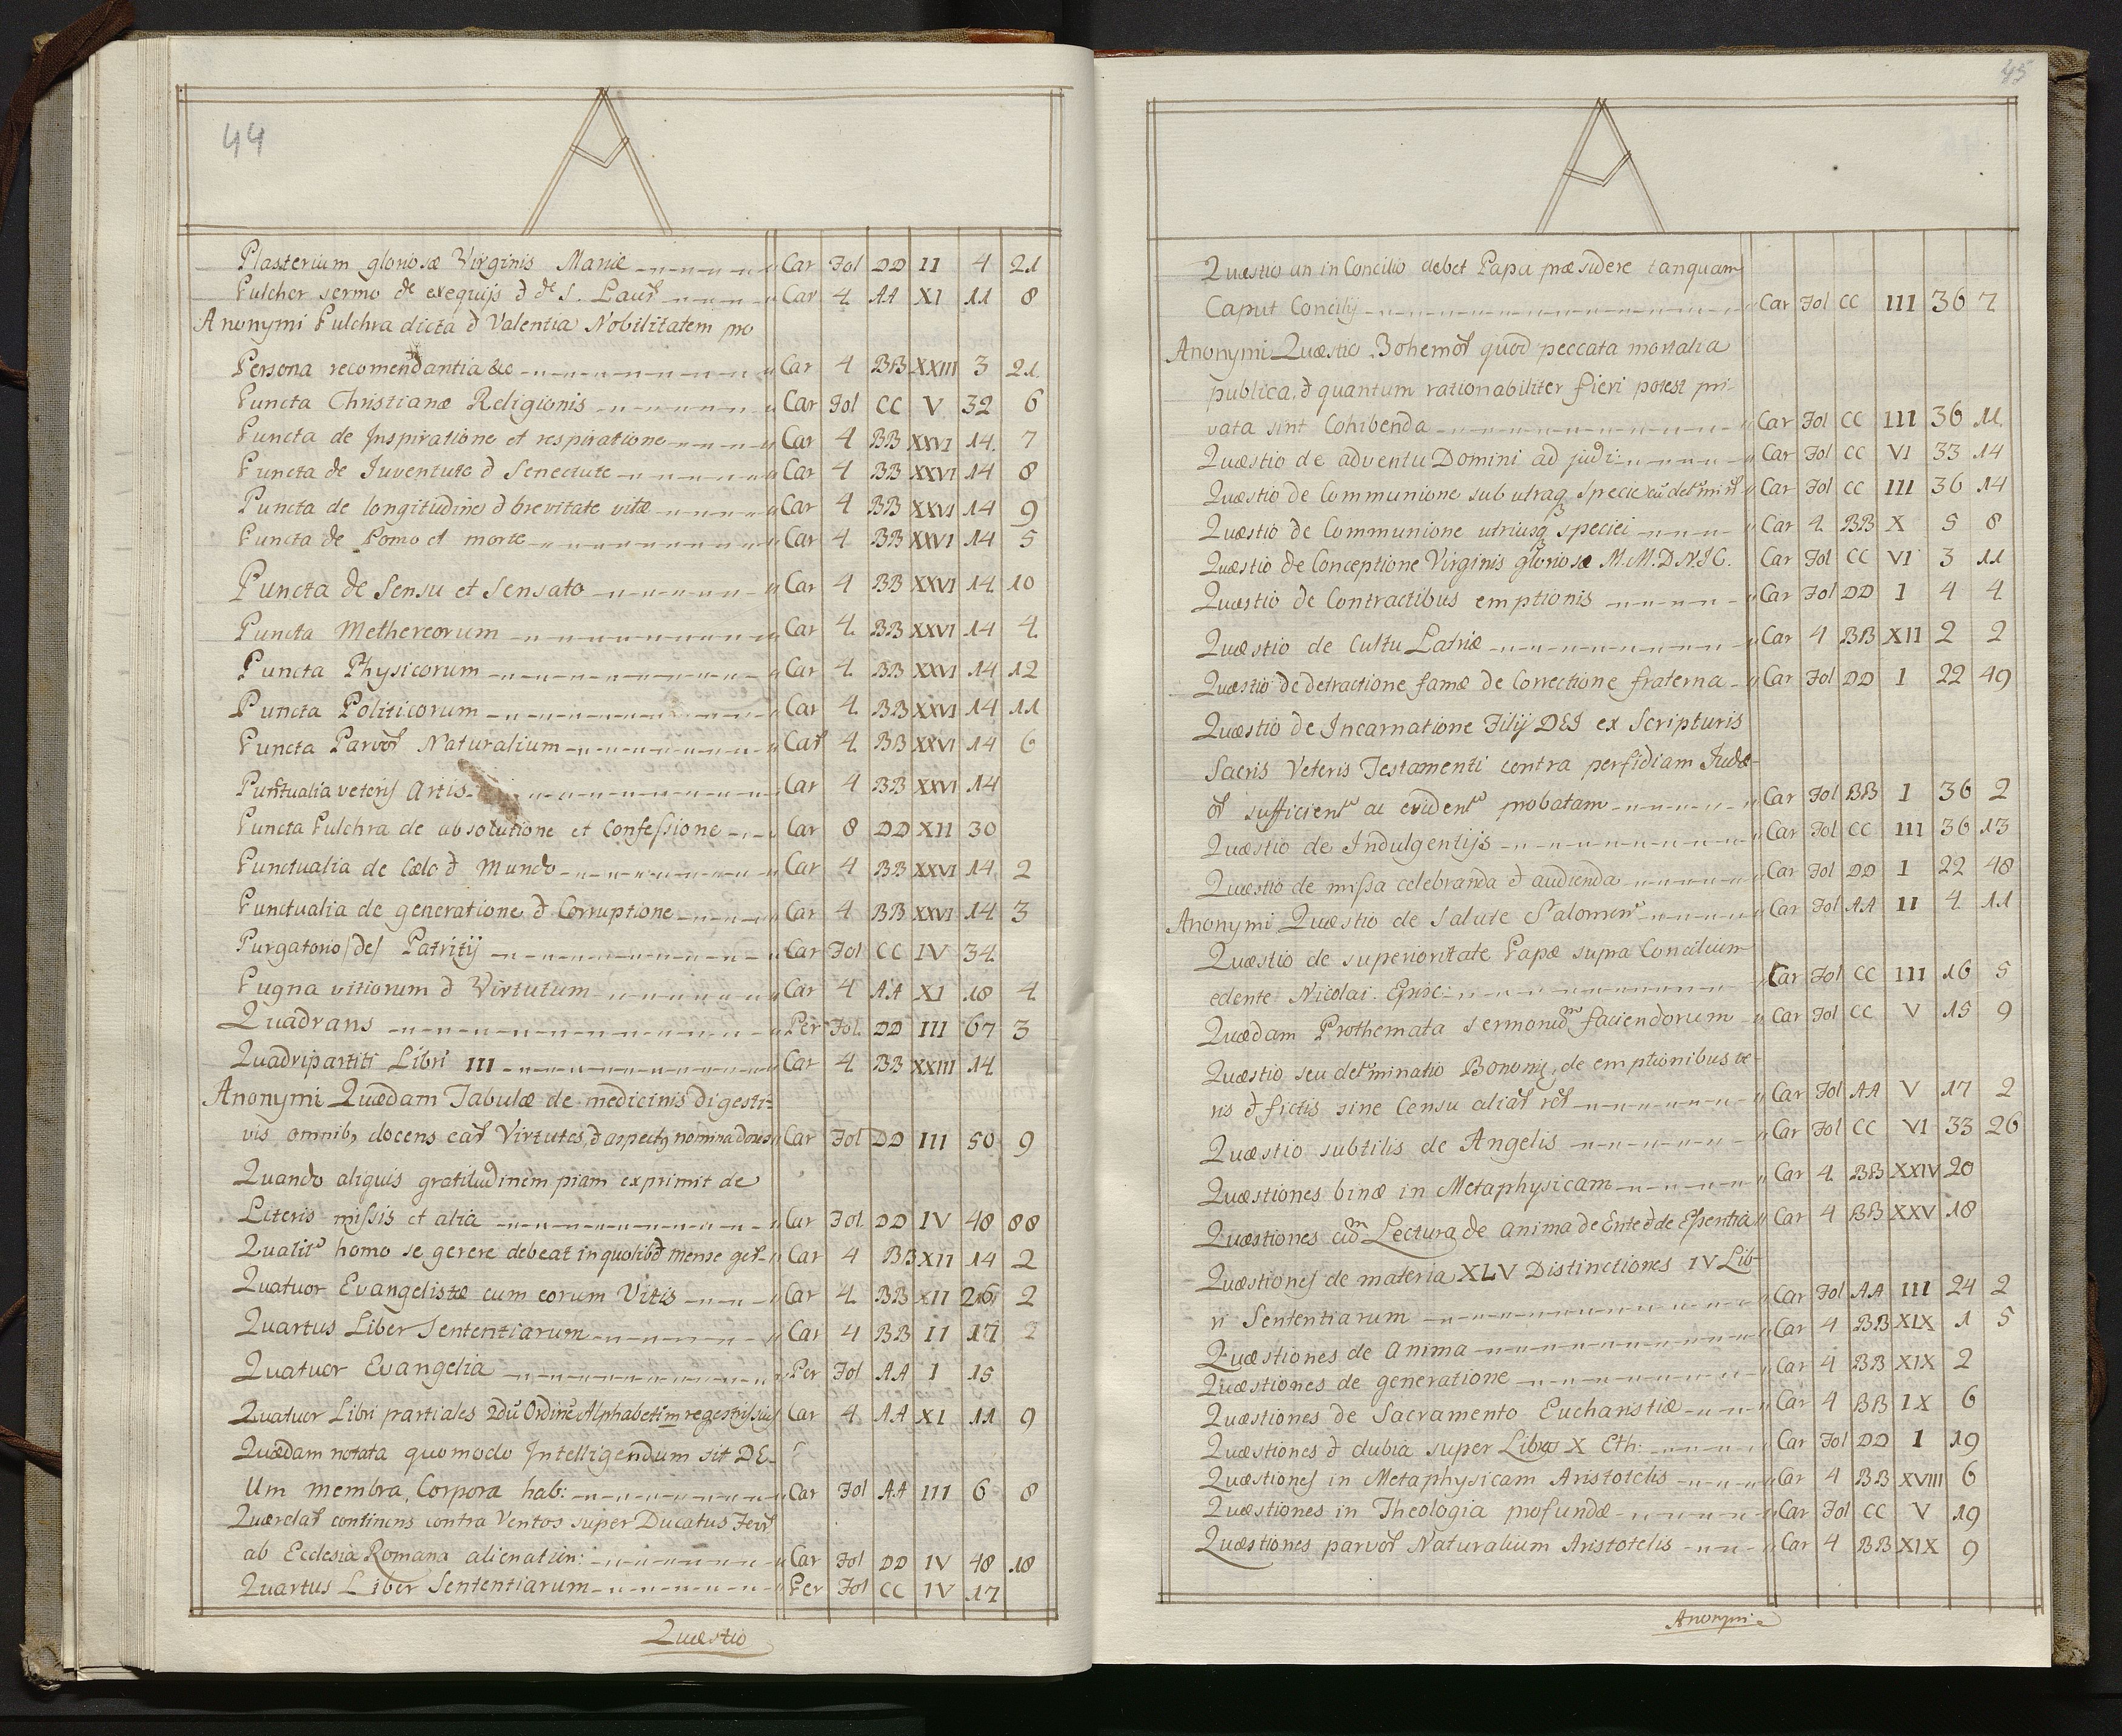 44
A
Plasterium gloriosæ Virginis Mariæ Car Fol DD II 4 21
Pulcher sermo de exequijs & de S. Laur Car 4 AA XI 11 8
Anonymi Pulchra dicta & Valentia Nobilitatem pro
Persona recomendantia &c Car 4 BB XXIII 3 21
Puncta Christianæ Religionis Car Fol CC V 32 6
Puncta de Inspiratione et respiratione Car 4 BB XXVI 14 7
Puncta de Juventute & Senectute Car 4 BB XXVI 14 8
Puncta de longitudine & brevitate vitæ Car 4 BB XXVI 14 9
Puncta de Pomo et morte Car 4 BB XXVI 14 5
Puncta de Sensu et Sensato Car 4 BB XXVI 14 10
Puncta Methereorum Car 4 BB XXVI 14 4
Puncta Physicorum Car 4 BB XXVI 14 12
Puncta Politicorum Car 4 BB XXVI 14 11
Puncta Parvor Naturalium Car 4 BB XXVI 14 6
Punctualia veteris Artis Car 4 BB XXVI 14
Puncta Pulchra de absolutione et Confessione Car 8 DD XII 30
Punctualia de Cælo & Mundo Car 4 BB XXVI 14 2
Punctualia de generatione & Corruptione Car 4 BB XXVI 14 3
Purgatorio /de/ Patritij Car Fol CC IV 34
Pugna vitiorum & Virtutum Car 4 AA XI 18 4
Quadrans Per Fol DD III 67 3
Quadripartiti Libri III Car 4 BB XXIII 14
Anonymi Quædam Tabulæ de medicinis digesti=
vis omnib, docens ear Virtutes, & aspectq nomina Car Fol DD III 50 9
Quando aliquis gratitudinem piam exprimit de
Literis missis et alia Car Fol DD IV 48 88
Qualitr homo se gerere debeat in quolibet mense Car 4 BB XII 14 2
Quatuor Evangelistæ cum eorum Vitis Car 4 BB XII 26 2
Quartus Liber Sententiarum Car 4 BB II 17 2
Quatuor Evangelia Per Fol AA I 15
Quatuor Libri partiales 2du Ordine Alphabetim Car 4 AA XI 11 9
Quædam notata quomodo Intelligendum sit DE-
Um membra, Corpora hab: Car Fol AA III 6 8
Quærelas continens contra Ventos super Ducatus Ferr
ab Ecclesia Romana alienatiin: Car Fol DD IV 48 18
Quartus Liber Sententiarum Per Fol CC IV 17
Quæstio
45
A
Quæstio an in Concilio debet Papa præsidere tanquam
Caput Concilij Car Fol CC III 36 7
Anonymi Quæstio Bohemor quod peccata mortalia
publica, & quantum rationabiliter fieri potest pri-
vata sint Cohibenda Car Fol CC III 36 11
Quæstio de adventu Domini ad judi: Car Fol CC VI 33 14
Quæstio de Communione sub utraq specie Car Fol CC III 36 14
Quæstio de Communione utriusq speciei Car 4 BB X 5 8
Quæstio de Conceptione Virginis gloriosæ M.M.D.N.J.C. Car Fol CC VI 3 11
Quæstio de Contractibus emptionis Car Fol DD I 4 4
Quæstio de Cultu Latriæ Car 4 BB XII 2 2
Quæstio de detractione famæ de Correctione fraterna Car Fol DD I 22 49
Quæstio de Incarnatione Filij DEI ex Scripturis
Sacris Veteris Testamenti contra perfidiam Judæ-
or sufficientr ac evidentr probatam Car Fol BB I 36 2
Quæstio de Indulgentijs Car Fol CC III 36 13
Quæstio de missa celebranda & audienda Car Fol DD I 22 48
Anonymi Quæstio de Salute Salomon Car Fol AA II 4 11
Quæstio de superioritate Papæ supra Concilium
edente Nicolai Episc: Car Fol CC III 16 5
Quædam Prothemata sermonum faciendorum Car Fol CC V 15 9
Quæstio seu detrminatio Bonomy, de emptionibus ve-
ris & fictis sine Censu aliar rer Car Fol AA V 17 2
Quæstio subtilis de Angelis Car Fol CC VI 33 26
Quæstiones binæ in Metaphysicam Car 4 BB XXIV 20
Quæstiones cum Lectura de anima de Ente & de Essentia Car 4 BB XXV 18
Quæstiones de materia XLV Distinctiones IV Lib-
ri Sententiarum Car Fol AA III 24 2
Quæstiones de Anima Car 4 BB XIX 1 5
Quæstiones de generatione Car 4 BB XIX 2
Quæstiones de Sacramento Eucharistiæ Car 4 BB IX 6
Quæstiones & dubia super Libros X Eth: Car Fol DD I 19
Quæstiones in Metaphysicam Aristotelis Car 4 BB XVIII 6
Quæstiones in Theologia profundæ Car Fol CC V 19
Quæstiones parvor Naturalium Aristotelis Car 4 BB XIX 9
Anonymi